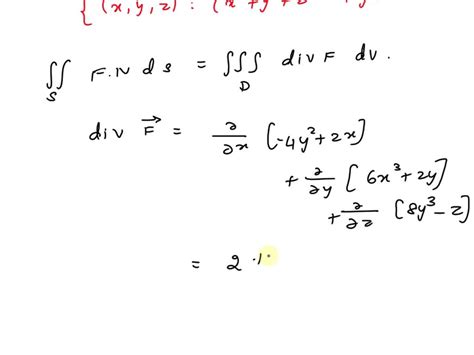 { (x, y, z) :
∬_S F.N ds = ∭_D div F dv.
div F⃗ = ∂/∂x [-4y²+2x]
+ ∂/∂y [6x³+2y]
+ ∂/∂z [8y³-z]
= 2